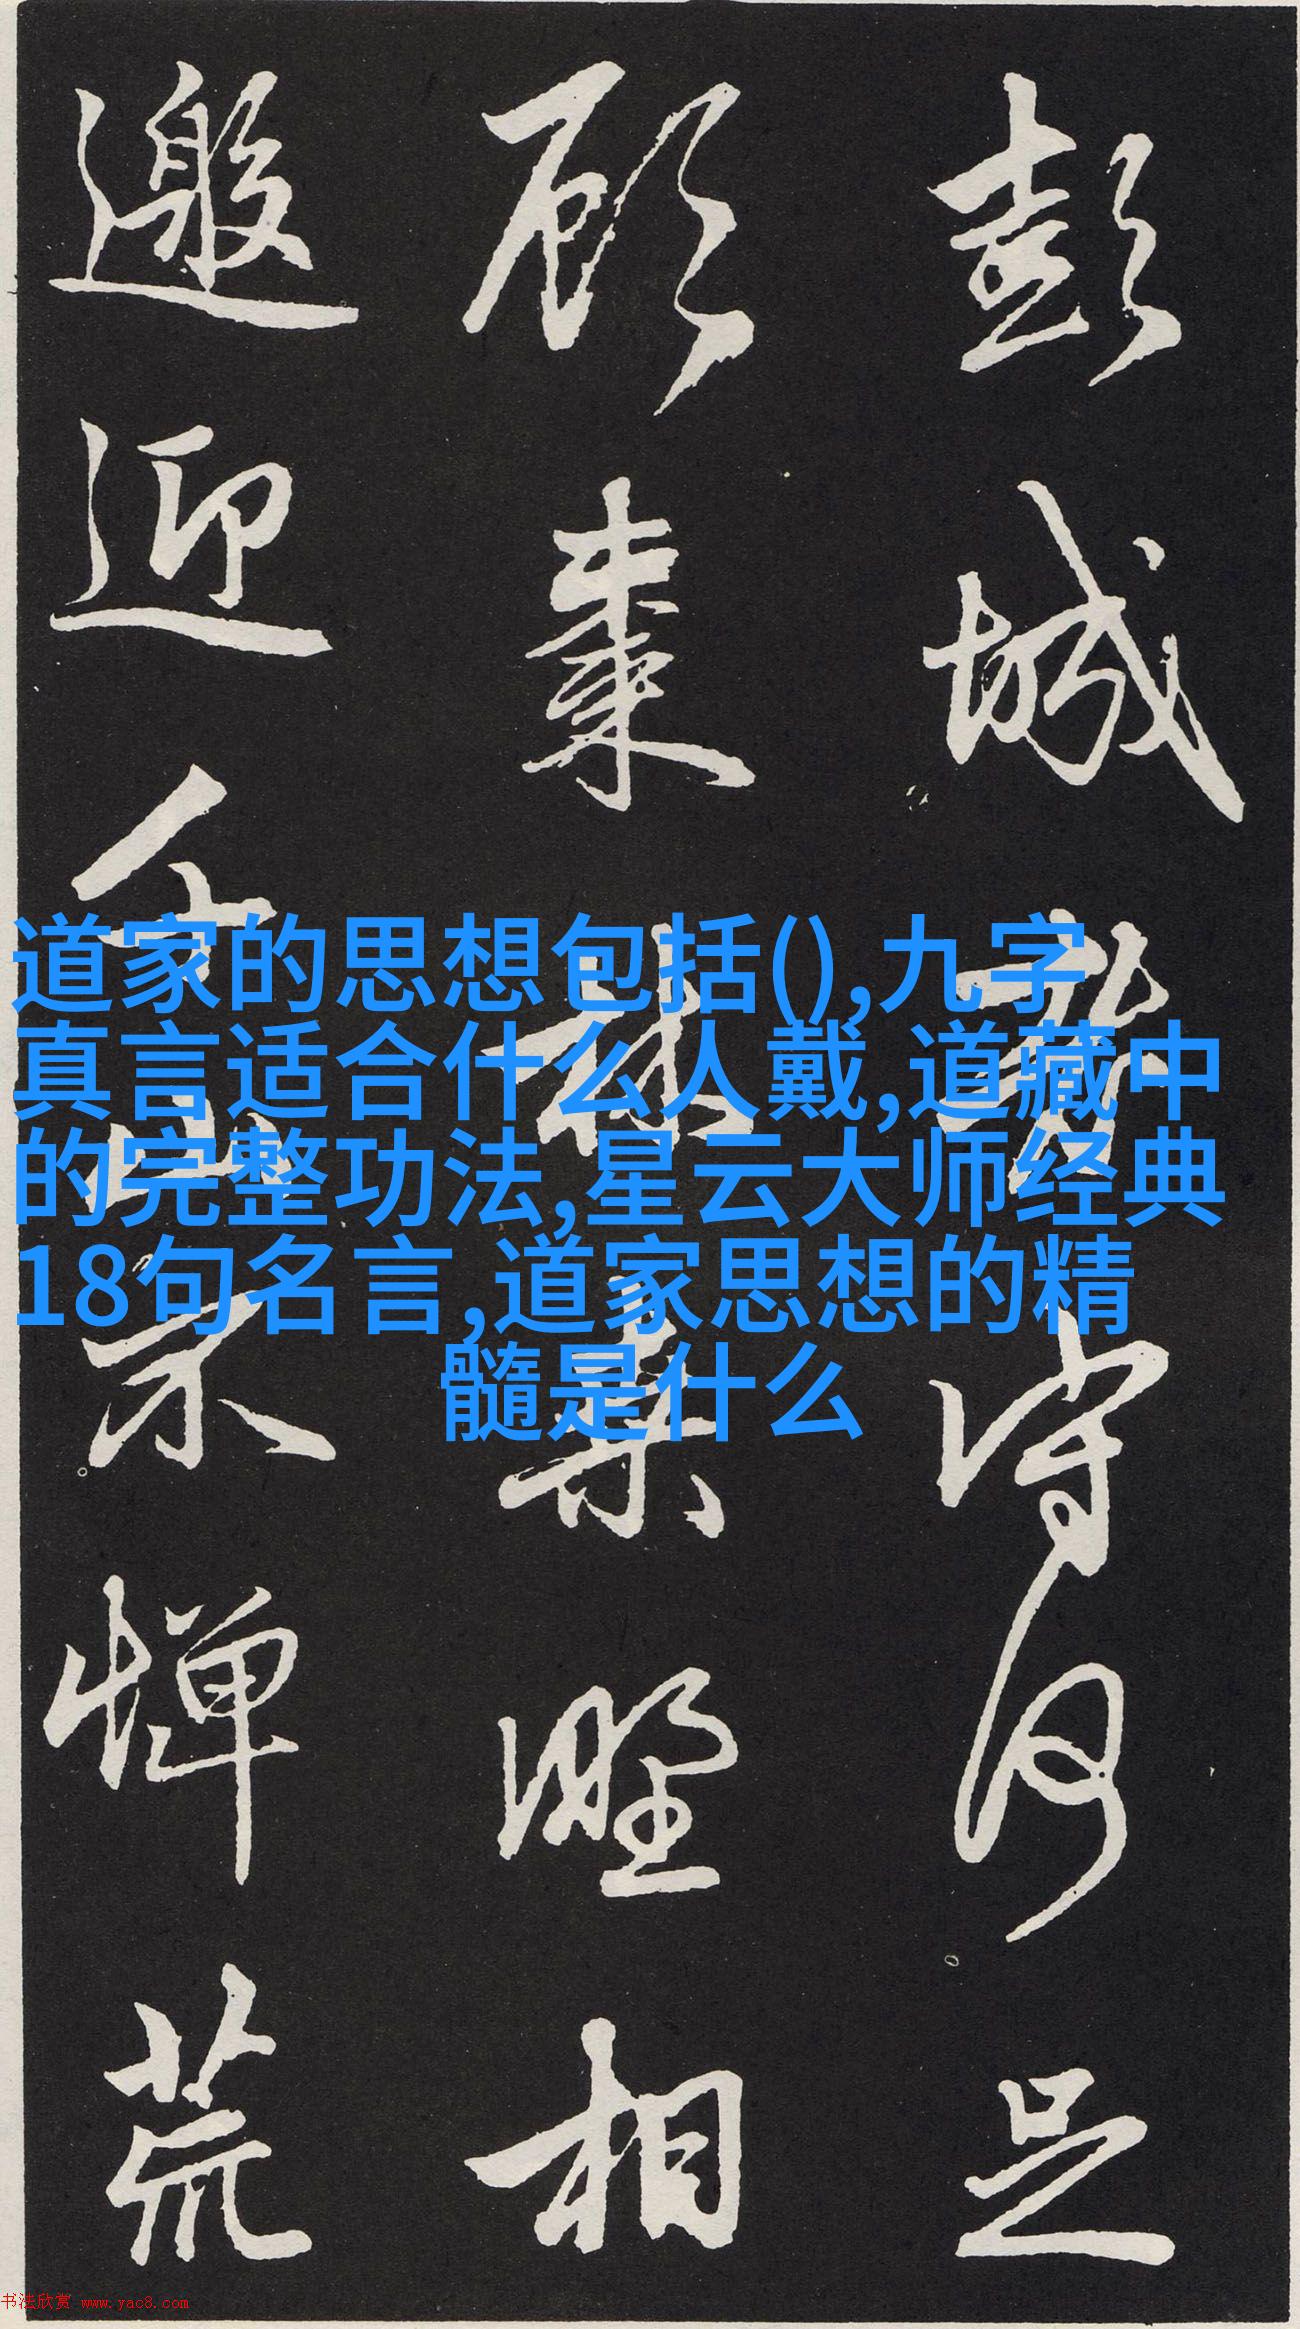 彭城守何足
顧棗林桑野相
邀迎千山不憚荒
道家的思想包括(),九字
真言适合什么人戴,道藏中
的完整功法,星云大师经典
18句名言,道家思想的精
髓是什么
书法欣赏 www.yac8.com